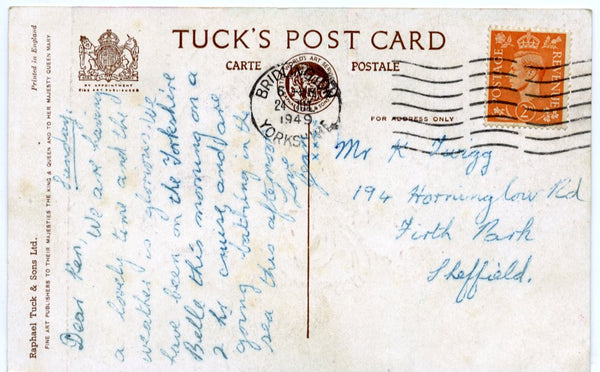 TUCK'S POST CARD
CARTE POSTALE
BY APPOINTMENT
FINE ART PUBLISHERS
Printed in England
Raphael Tuck & Sons Ltd.
FINE ART PUBLISHERS TO THEIR MAJESTIES THE KING & QUEEN AND TO HER MAJESTY QUEEN MARY
BRIDLINGTON
24 JUL
1949
YORKSHIRE
POSTAGE
REVENUE
2D
FOR ADDRESS ONLY
Sunday
Dear Ken,
We are having
a lovely time and the
weather is glorious. We
have been on the Yorkshire
Belle this morning on a
2 hr cruise and are
going bathing in the
sea this afternoon
Love
Jean xxx
Mr K
194 Horninglow Rd
Firth Park
Sheffield.